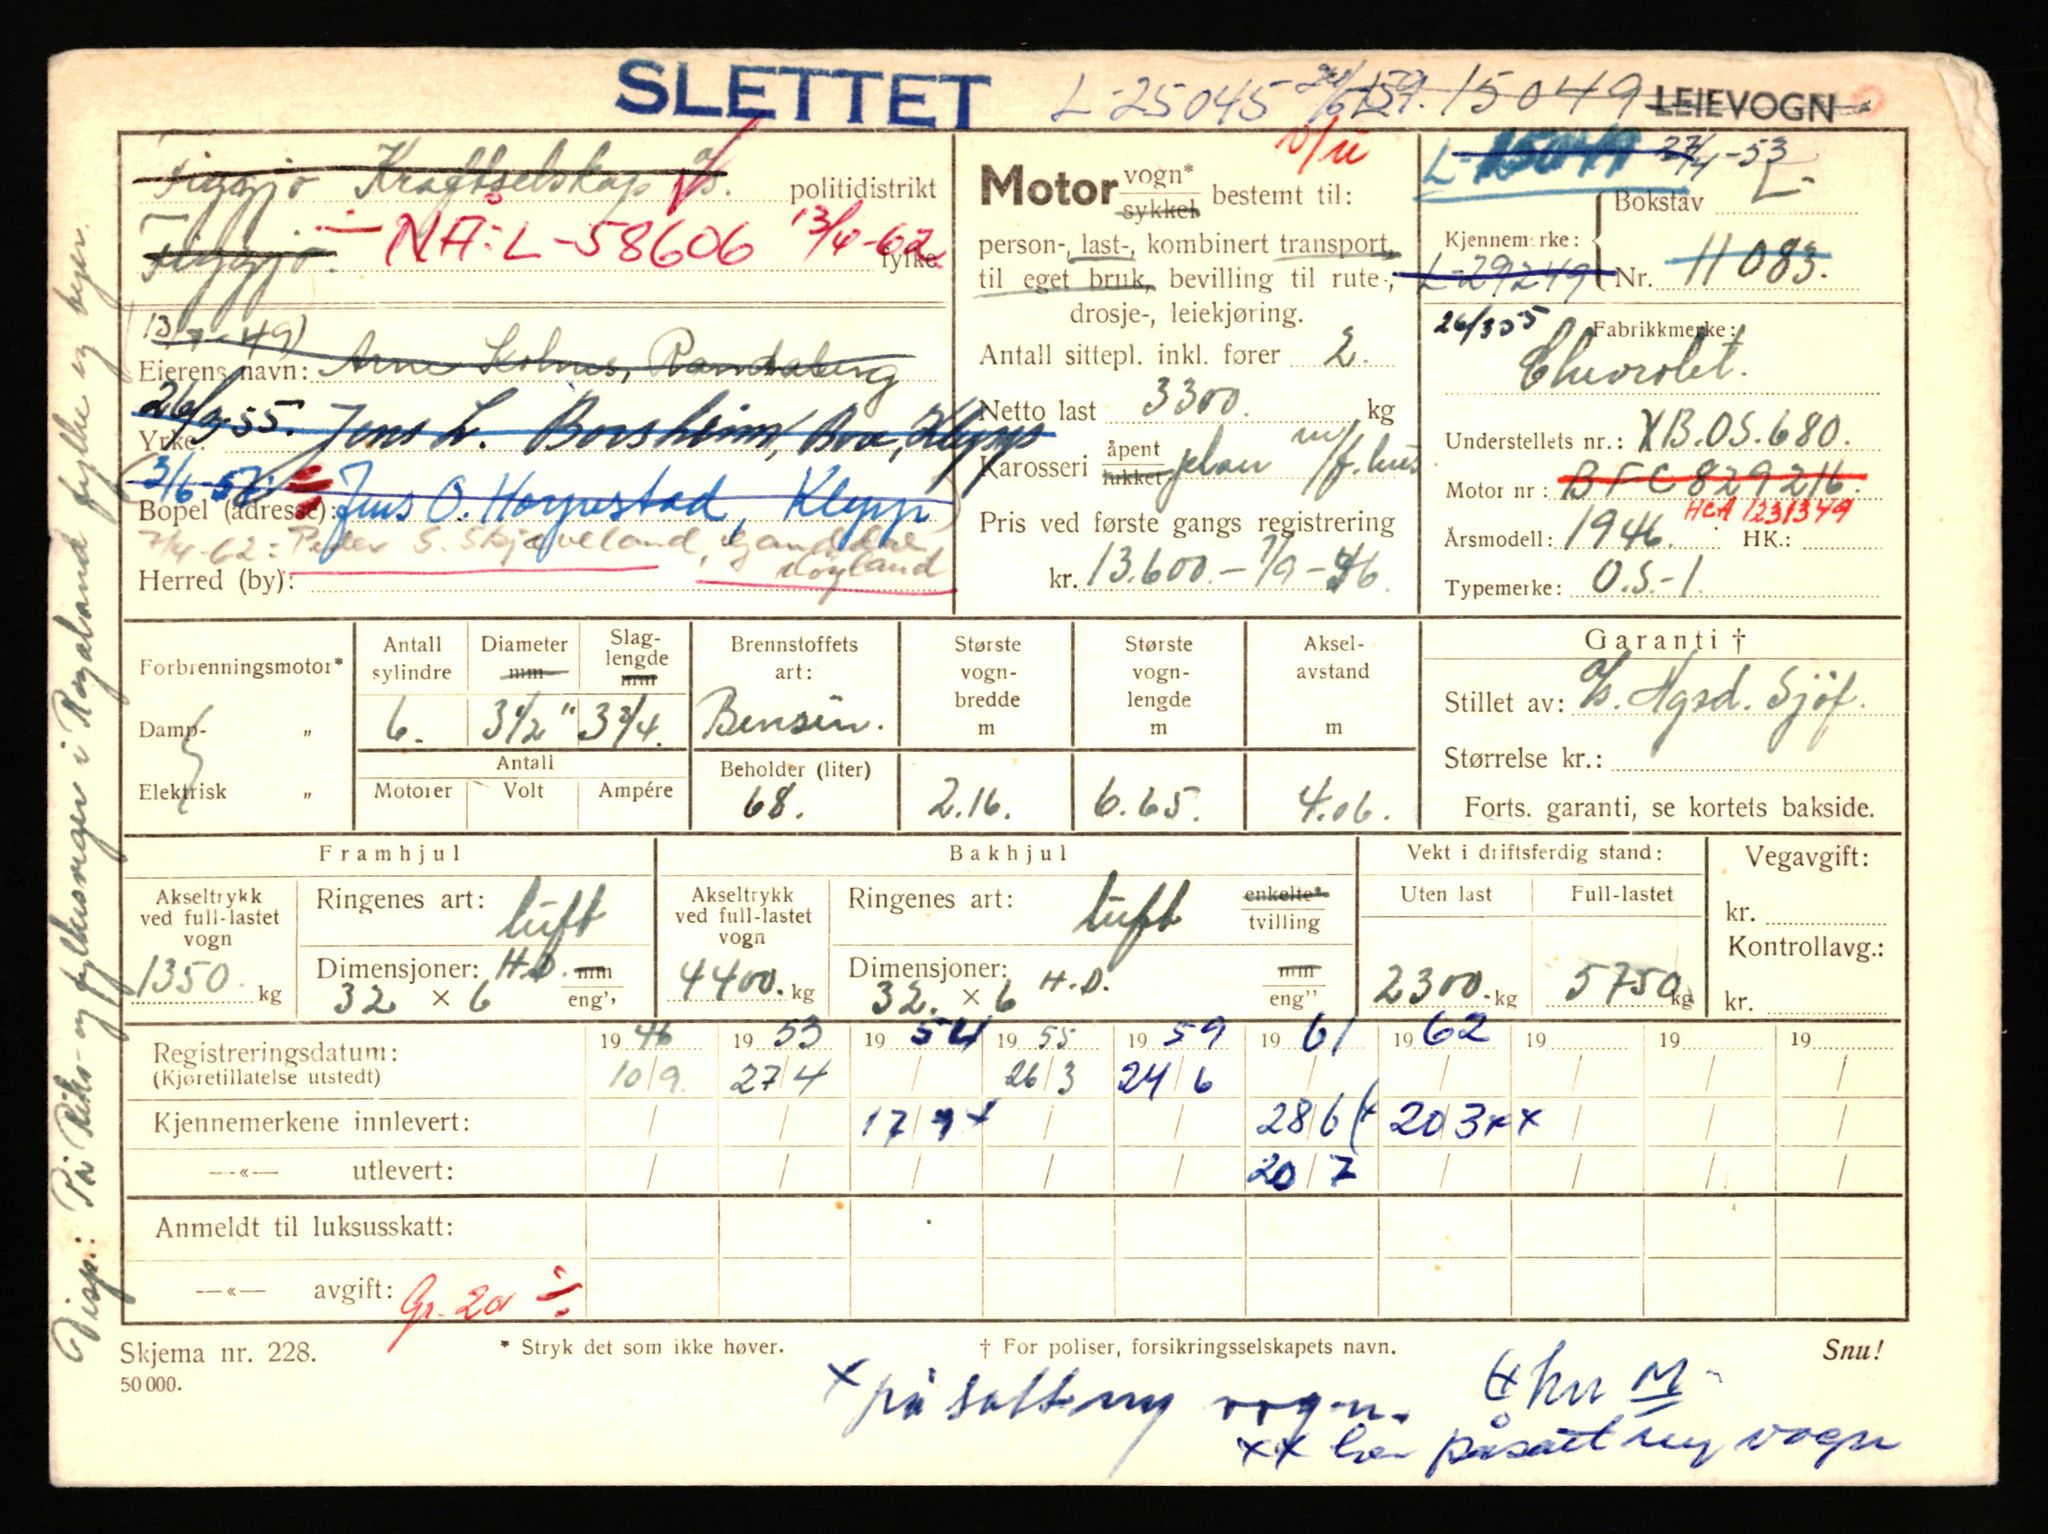 SLETTET L-25045 24/6-59. 15049 LEIEVOGN
Figgjo Kraftselskap a/s. politidistrikt
Figgjo. NÅ: L-58606 13/4-62 fylke
13/7-49)
Eierens navn: Arne Randaberg
26/3-55. Jens L. Borsheim, Bore, Klepp
Yrke:
(3/6-57 Jens O. Horpestad, Klepp)
Bopel (adresse):
7/4-62: Peder S. Skjæveland,
Høyland
Herred (by):
Motor vogn* sykkel bestemt til:
v/u
person-, last-, kombinert transport,
til eget bruk, bevilling til rute-,
drosje-, leiekjøring.
Antall sittepl. inkl. fører 2.
Netto last 3300. kg
Karosseri åpent lukket plan m/f.hus
Pris ved første gangs registrering
kr. 13.600.- 7/9-46.
L-15049 27/4-53
Bokstav L.
Kjennemerke:
L-29249 Nr. 11083.
26/3 55 Fabrikkmerke:
Chevrolet.
Understellets nr.: XB.OS.680.
Motor nr: BFC 829216.
HCA 1231349
Årsmodell: 1946. HK.:
Typemerke: O.S.-1.
Forbrenningsmotor*
Damp- „
Elektrisk „
Antall sylindre 6.
Diameter mm 3 1/2"
Slaglengde mm 3 3/4.
Antall
Motorer Volt Ampére
Brennstoffets art: Bensin.
Beholder (liter) 68.
Største vognbredde m 2.16.
Største vognlengde m 6.65.
Akselavstand m 4.06.
Garanti †
Stillet av: A/s. Agrd. Sjöf.
Størrelse kr.:
Forts. garanti, se kortets bakside.
Framhjul
Akseltrykk ved full-lastet vogn 1350. kg
Ringenes art: luft
Dimensjoner: H.D. mm
32 × 6 eng''
Bakhjul
Akseltrykk ved full-lastet vogn 4400. kg
Ringenes art: luft enkelte* tvilling
Dimensjoner: H.D. mm
32. × 6 eng"
Vekt i driftsferdig stand:
Uten last 2300. kg
Full-lastet 5750 kg
Vegavgift:
kr.
Kontrollavg.:
kr.
19 46 19 53 19 54 19 55 19 59 19 61 19 62 19 19 19
Registreringsdatum:
(Kjøretillatelse utstedt) 10/9. 27/4 / 26/3 24/6 / / / / /
Kjennemerkene innlevert: / / 17/9 x / / 28/6 (x 20/3 xx / / /
—«— utlevert: / / / / / 20/7 / / / /
Anmeldt til luksusskatt:
—«— avgift: Gr. 2a
Skjema nr. 228. * Stryk det som ikke høver. † For poliser, forsikringsselskapets navn. Snu!
50 000.
x påsatt ny vogn.
xx påsatt ny vogn
Disp.: På Riks- og fylkesveger i Rogaland fylke og byer.